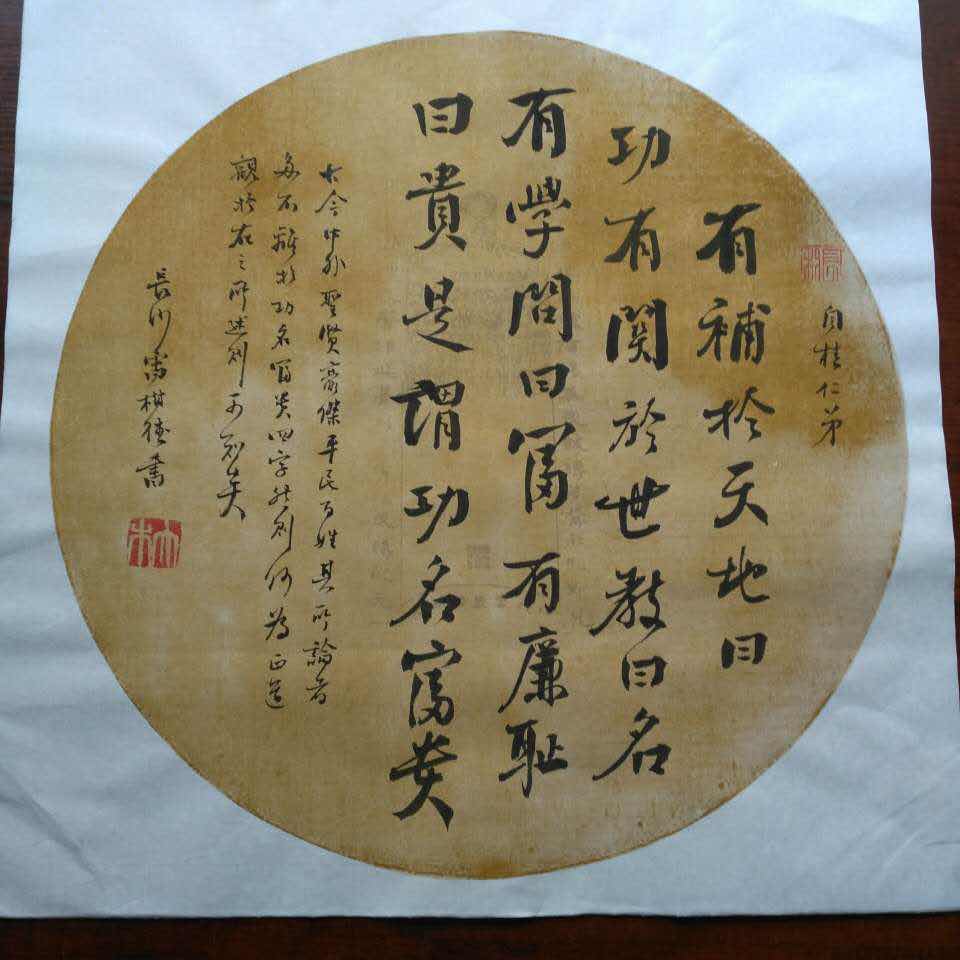 自桂仁弟
有補於天地曰
功有関於世教曰名
有學問曰富有廉耻
曰貴是謂功名富贵
古今中外聖賢豪傑平民百姓其所論者
每不離於功名富贵四字然則何為正道
觀於右之所述則可知矣
長川 柑德書